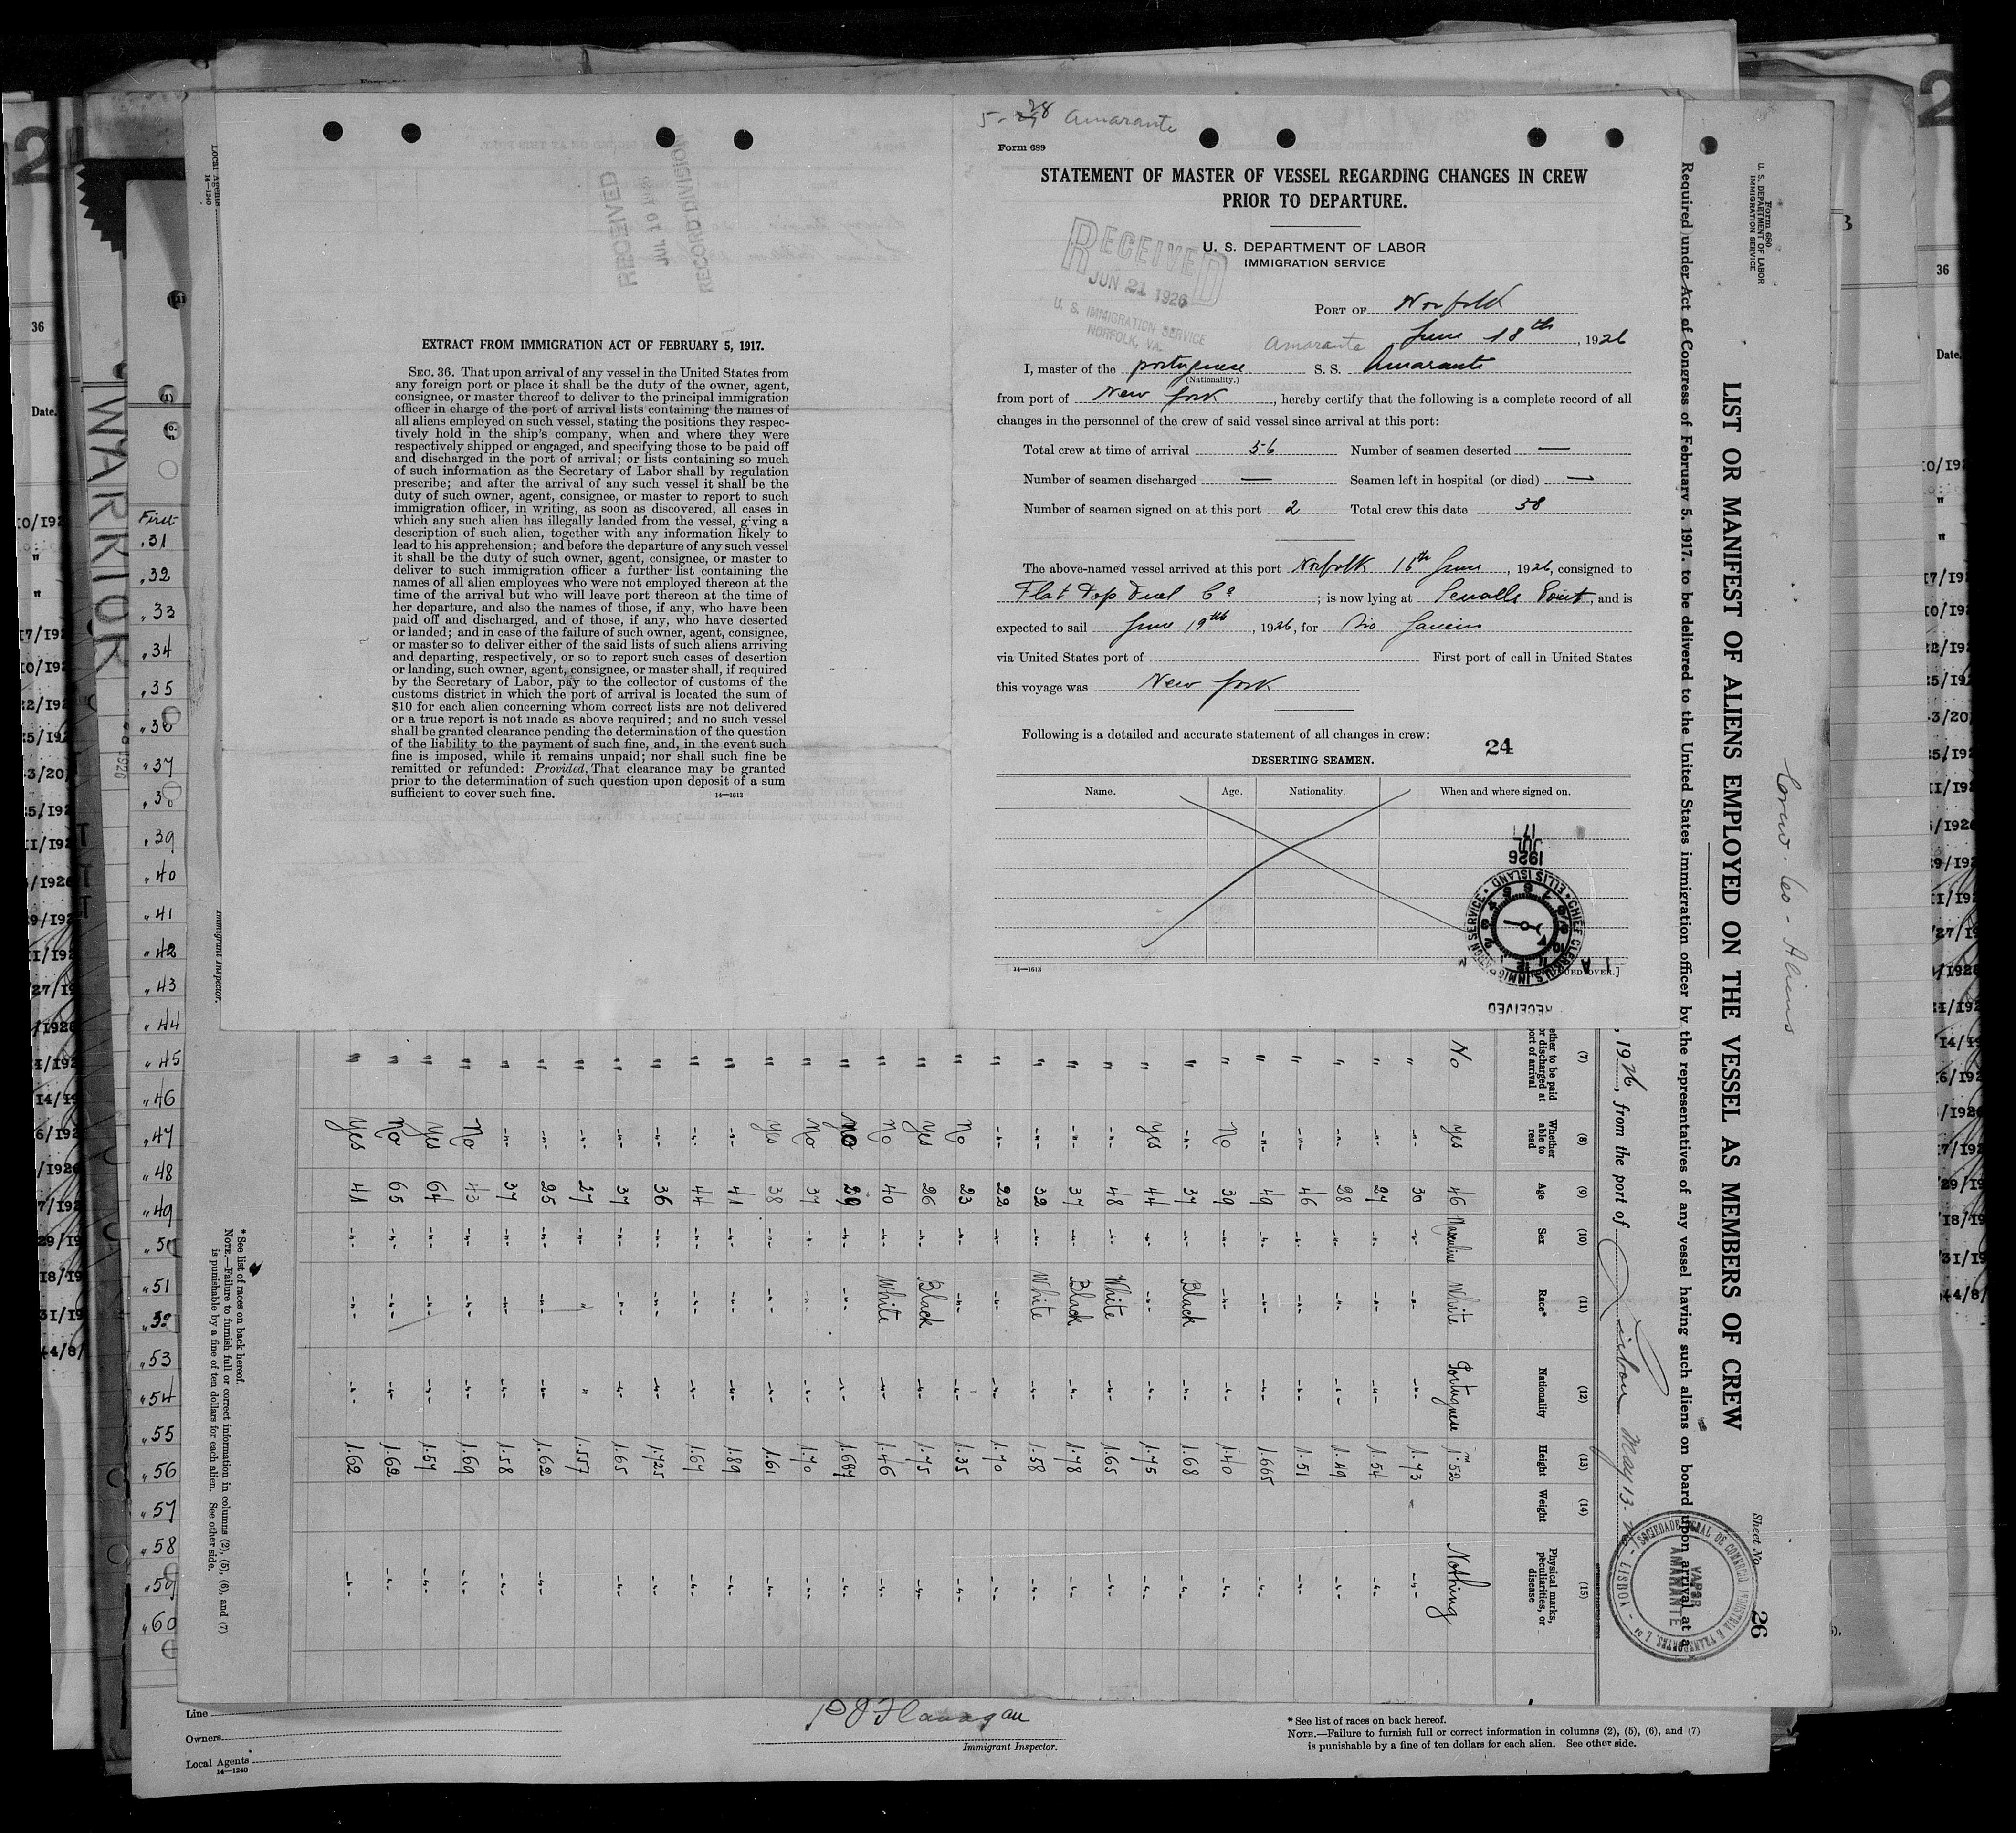 5-28 Amarante
Form 689
STATEMENT OF MASTER OF VESSEL REGARDING CHANGES IN CREW
PRIOR TO DEPARTURE.
U. S. DEPARTMENT OF LABOR
IMMIGRATION SERVICE
RECEIVED
JUN 21 1926
U. S. IMMIGRATION SERVICE
NORFOLK, VA.
PORT OF Norfolk
Amarante June 18th, 1926
I, master of the portuguese S. S. Amarante
(Nationality.)
from port of New York, hereby certify that the following is a complete record of all
changes in the personnel of the crew of said vessel since arrival at this port:
Total crew at time of arrival 56 Number of seamen deserted —
Number of seamen discharged — Seamen left in hospital (or died) —
Number of seamen signed on at this port 2 Total crew this date 58
The above-named vessel arrived at this port Norfolk 16th June, 1926, consigned to
Flat Top Fuel Co; is now lying at Sewalls Point, and is
expected to sail June 19th, 1926, for Rio Janeiro
via United States port of First port of call in United States
this voyage was New York
Following is a detailed and accurate statement of all changes in crew:
24
DESERTING SEAMEN.
Name. Age. Nationality. When and where signed on.
14—1613
RECEIVED
JUL 17
1926
CHIEF CLERK'S
ELLIS ISLAND
RECEIVED
JUL 10
RECORD DIVISION
EXTRACT FROM IMMIGRATION ACT OF FEBRUARY 5, 1917.
SEC. 36. That upon arrival of any vessel in the United States from
any foreign port or place it shall be the duty of the owner, agent,
consignee, or master thereof to deliver to the principal immigration
officer in charge of the port of arrival lists containing the names of
all aliens employed on such vessel, stating the positions they respec-
tively hold in the ship's company, when and where they were
respectively shipped or engaged, and specifying those to be paid off
and discharged in the port of arrival; or lists containing so much
of such information as the Secretary of Labor shall by regulation
prescribe; and after the arrival of any such vessel it shall be the
duty of such owner, agent, consignee, or master to report to such
immigration officer, in writing, as soon as discovered, all cases in
which any such alien has illegally landed from the vessel, giving a
description of such alien, together with any information likely to
lead to his apprehension; and before the departure of any such vessel
it shall be the duty of such owner, agent, consignee, or master to
deliver to such immigration officer a further list containing the
names of all alien employees who were not employed thereon at the
time of the arrival but who will leave port thereon at the time of
her departure, and also the names of those, if any, who have been
paid off and discharged, and of those, if any, who have deserted
or landed; and in case of the failure of such owner, agent, consignee,
or master so to deliver either of the said lists of such aliens arriving
and departing, respectively, or so to report such cases of desertion
or landing, such owner, agent, consignee, or master shall, if required
by the Secretary of Labor, pay to the collector of customs of the
customs district in which the port of arrival is located the sum of
$10 for each alien concerning whom correct lists are not delivered
or a true report is not made as above required; and no such vessel
shall be granted clearance pending the determination of the question
of the liability to the payment of such fine, and, in the event such
fine is imposed, while it remains unpaid; nor shall such fine be
remitted or refunded: Provided, That clearance may be granted
prior to the determination of such question upon deposit of a sum
sufficient to cover such fine.
14—1613
Form 680
U. S. DEPARTMENT OF LABOR
IMMIGRATION SERVICE
Sheet No. 26
LIST OR MANIFEST OF ALIENS EMPLOYED ON THE VESSEL AS MEMBERS OF CREW
Required under Act of Congress of February 5, 1917, to be delivered to the United States immigration officer by the representatives of any vessel having such aliens on board upon arrival at a
, 1926, from the port of Lisbon May 13-26
SOCIEDADE GERAL DE COMERCIO INDUSTRIA E TRANSPORTES, L.DA - LISBOA -
VAPOR
AMARANTE
(7) (8) (9) (10) (11) (12) (13) (14) (15)
Whether able to read Age Sex Race* Nationality Height Weight Physical marks, peculiarities, or disease
No Yes 46 Masculine White Portuguese 1m52 Nothing
" -"- 30 -"- -"- -"- 1.73 -"-
" -"- 27 -"- -"- -"- 1.54 -"-
" -"- 28 -"- -"- -"- 1.49 -"-
" -"- 46 -"- -"- -"- 1.51 -"-
" -"- 49 -"- -"- -"- 1.665 -"-
" No 39 -"- -"- -"- 1.40 -"-
" -"- 37 -"- Black -"- 1.68 -"-
" Yes 44 -"- -"- -"- 1.75 -"-
" -"- 48 -"- White -"- 1.65 -"-
" -"- 37 -"- Black -"- 1.78 -"-
" -"- 32 -"- White -"- 1.58 -"-
" -"- 22 -"- -"- -"- 1.70 -"-
" No 23 -"- -"- -"- 1.35 -"-
" Yes 26 -"- Black -"- 1.75 -"-
" No 40 -"- White -"- 1.46 -"-
" No 29 -"- -"- -"- 1.687 -"-
" No 37 -"- -"- -"- 1.70 -"-
" Yes 38 -"- -"- -"- 1.61 -"-
" -"- 41 -"- -"- -"- 1.89 -"-
" -"- 44 -"- -"- -"- 1.67 -"-
" -"- 36 -"- -"- -"- 1.725 -"-
" -"- 37 -"- -"- -"- 1.65 -"-
" -"- 27 -"- " " 1.557
" -"- 25 -"- -"- -"- 1.62 -"-
" -"- 37 -"- -"- -"- 1.58 -"-
" No 43 -"- -"- -"- 1.69 -"-
" Yes 64 -"- -"- -"- 1.57 -"-
" No 65 -"- -"- -"- 1.62 -"-
" Yes 41 -"- -"- -"- 1.62 -"-
* See list of races on back hereof.
NOTE.—Failure to furnish full or correct information in columns (2), (5), (6), and (7)
is punishable by a fine of ten dollars for each alien. See other side.
Local Agents
14—1240
Immigrant Inspector.
WARRIOR
First
31
32
33
34
35
36
37
38
39
40
41
42
43
44
45
46
47
48
49
50
51
52
53
54
55
56
57
58
59
60
36
Date.
36
Date.
Line
Owners
Local Agents
14—1240
P J Flanagan
Immigrant Inspector.
* See list of races on back hereof.
NOTE.—Failure to furnish full or correct information in columns (2), (5), (6), and (7)
is punishable by a fine of ten dollars for each alien. See other side.